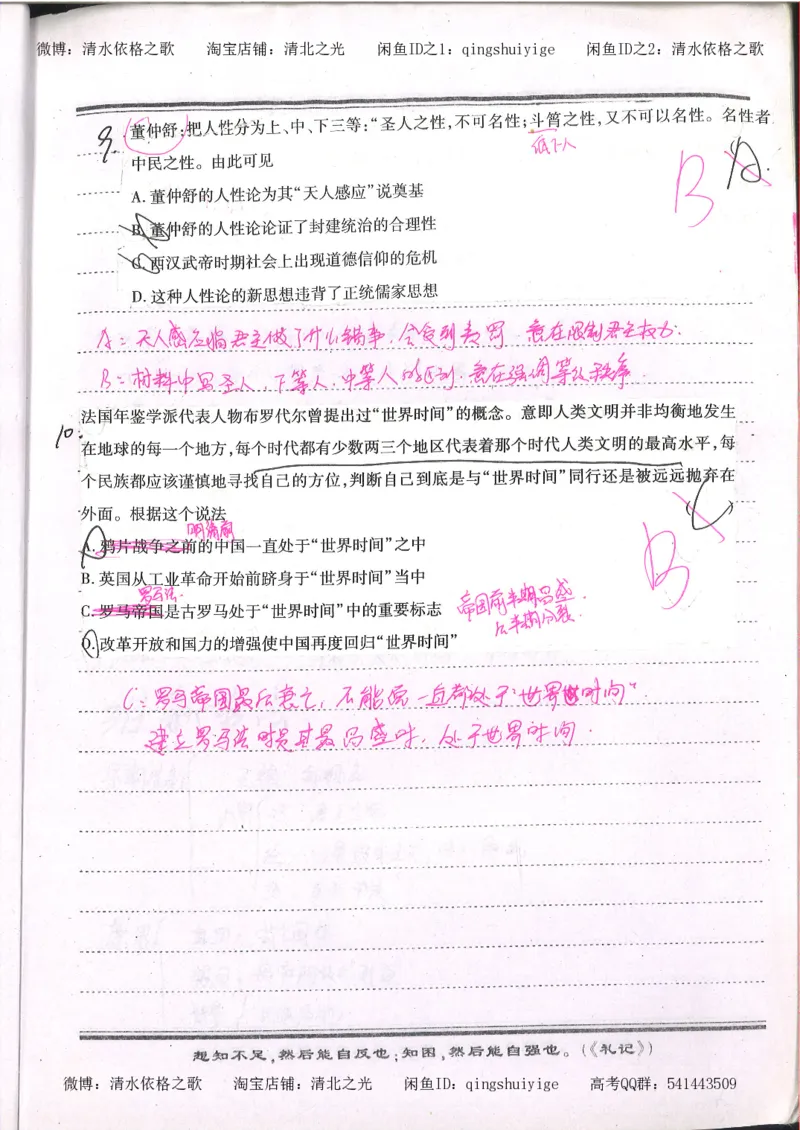 微博：清水依格之歌 淘宝店铺：清北之光 闲鱼ID之1：qingshuiyige 闲鱼ID之2：清水依格之歌
9. 董仲舒:把人性分为上、中、下三等:“圣人之性,不可名性;斗筲之性,又不可以名性。名性者
低下人
中民之性。由此可见
B A.
A. 董仲舒的人性论为其“天人感应”说奠基
B. 董仲舒的人性论论证了封建统治的合理性
C. 西汉武帝时期社会上出现道德信仰的危机
D. 这种人性论的新思想违背了正统儒家思想
A：天人感应指君主做了什么错事，会受到责罚，意在限制君主权力.
B：材料中写圣人，下等人，中等人的区别，意在强调等级秩序
10. 法国年鉴学派代表人物布罗代尔曾提出过“世界时间”的概念。意即人类文明并非均衡地发生
在地球的每一个地方,每个时代都有少数两三个地区代表着那个时代人类文明的最高水平,每
个民族都应该谨慎地寻找自己的方位,判断自己到底是与“世界时间”同行还是被远远抛弃在
外面。根据这个说法
(C)
明清前
A. 鸦片战争之前的中国一直处于“世界时间”之中
B. 英国从工业革命开始前跻身于“世界时间”当中
B
罗马法.
C. 罗马帝国是古罗马处于“世界时间”中的重要标志
帝国前半期昌盛.
后半期分裂.
D. 改革开放和国力的增强使中国再度回归“世界时间”
C：罗马帝国最后衰亡，不能说一直都处于“世界时间”.
建立罗马法时是其最昌盛时，处于世界时间.
想知不足,然后能自反也;知困,然后能自强也。(《礼记》)
微博：清水依格之歌 淘宝店铺：清北之光 闲鱼ID：qingshuiyige 高考QQ群：541443509